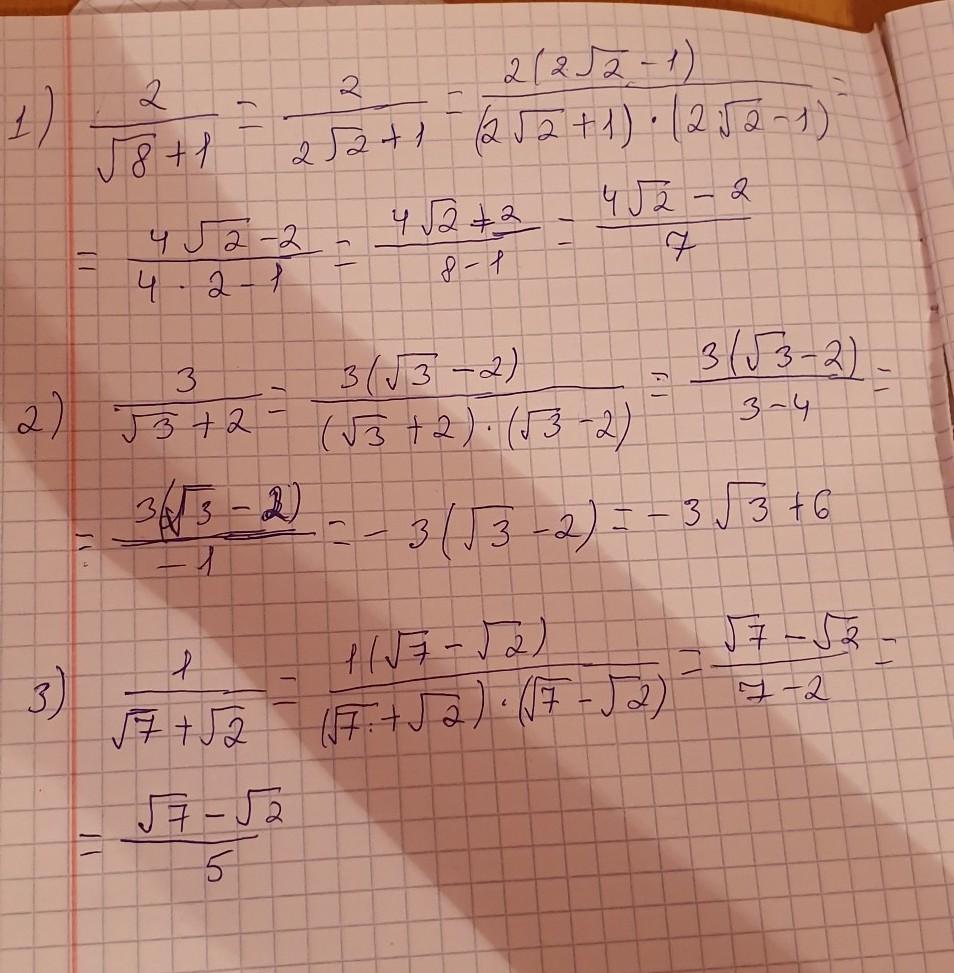 1) 2/(√8+1) = 2/(2√2+1) = 2(2√2-1)/((2√2+1)·(2√2-1)) =
= (4√2-2)/(4·2-1) = (4√2+2)/(8-1) = (4√2-2)/7
2) 3/(√3+2) = 3(√3-2)/((√3+2)·(√3-2)) = 3(√3-2)/(3-4) =
= 3(√3-2)/(-1) = -3(√3-2) = -3√3+6
3) 1/(√7+√2) = 1(√7-√2)/((√7+√2)·(√7-√2)) = (√7-√2)/(7-2) =
= (√7-√2)/5